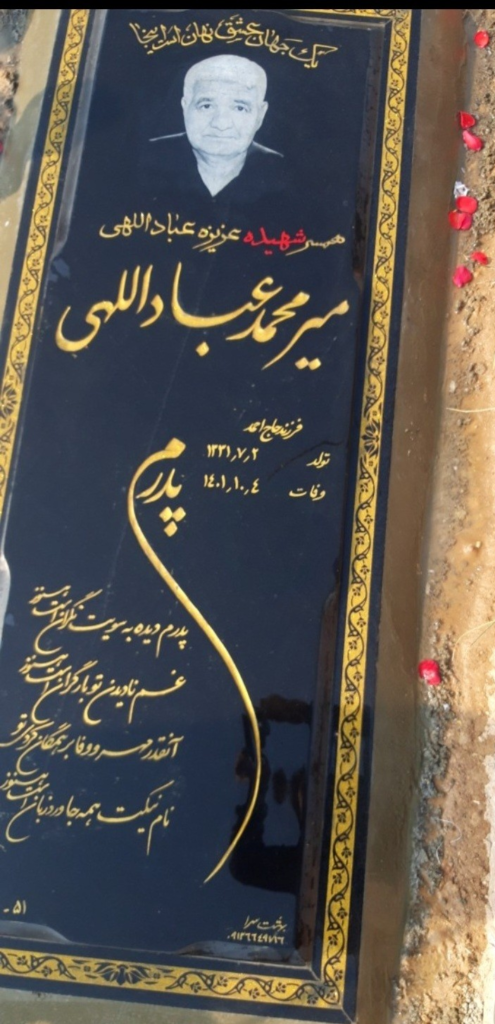 یک جهان عشق نهان است اینجا
همسر شهیده عزیزه عباداللهی
میرمحمد عباداللهی
فرزند حاج احمد
تولد ۱۳۳۱٫۷٫۲
وفات ۱۴۰۱٫۱۰٫۴
پدرم
پدرم دیده به سویت نگران است هنوز
غم نادیدن تو بار گران است هنوز
آنقدر مهر و وفا بر همگان کردی تو
نام نیکت همه جا ورد زبان است هنوز
۵۱ -
بهشت سرا